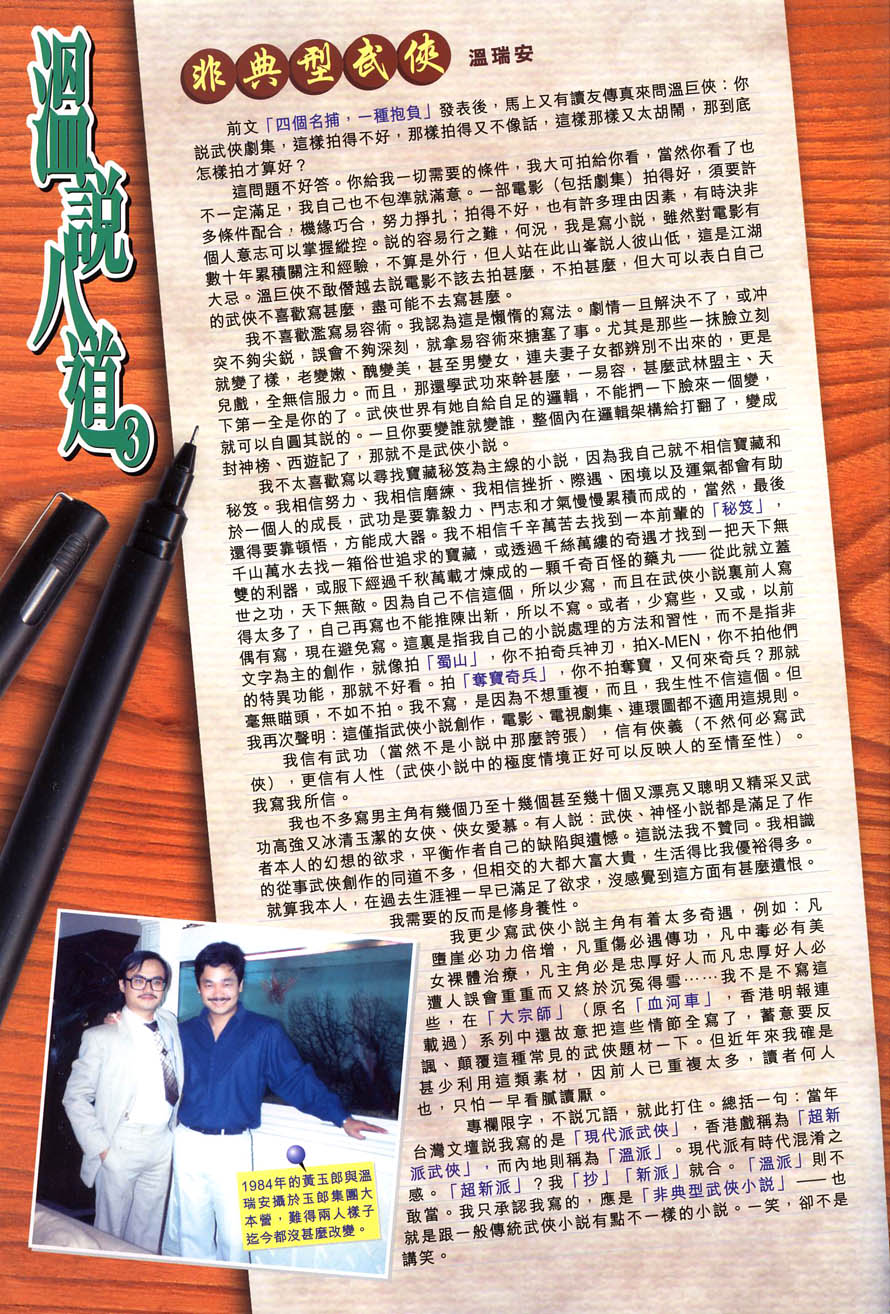 溫說八道3
非典型武俠
溫瑞安
前文「四個名捕，一種抱負」發表後，馬上又有讀友傳真來問溫巨俠：你
說武俠劇集，這樣拍得不好，那樣拍得又不像話，這樣那樣又太胡鬧，那到底
怎樣拍才算好？
這問題不好答。你給我一切需要的條件，我大可拍給你看，當然你看了也
不一定滿足，我自己也不包準就滿意。一部電影（包括劇集）拍得好，須要許
多條件配合，機緣巧合，努力掙扎；拍得不好，也有許多理由因素，有時決非
個人意志可以掌握縱控。説的容易行之難，何況，我是寫小説，雖然對電影有
數十年累積關注和經驗，不算是外行，但人站在此山峯説人彼山低，這是江湖
大忌。溫巨俠不敢僭越去説電影不該去拍甚麼，不拍甚麼，但大可以表白自己
的武俠不喜歡寫甚麼，盡可能不去寫甚麼。
我不喜歡濫寫易容術。我認為這是懶惰的寫法。劇情一旦解決不了，或冲
突不夠尖鋭，誤會不夠深刻，就拿易容術來搪塞了事。尤其是那些一抹臉立刻
就變了樣，老變嫩、醜變美，甚至男變女，連夫妻子女都辨別不出來的，更是
兒戲，全無信服力。而且，那還學武功來幹甚麼，一易容，甚麼武林盟主、天
下第一全是你的了。武俠世界有她自給自足的邏輯，不能捫一下臉來一個變，
就可以自圓其説的。一旦你要變誰就變誰，整個內在邏輯架構給打翻了，變成
封神榜、西遊記了，那就不是武俠小説。
我不太喜歡寫以尋找寶藏秘笈為主線的小説，因為我自己就不相信寶藏和
秘笈。我相信努力、我相信磨練、我相信挫折、際遇、困境以及運氣都會有助
於一個人的成長，武功是要靠毅力、鬥志和才氣慢慢累積而成的，當然，最後
還得要靠頓悟，方能成大器。我不相信千辛萬苦去找到一本前輩的「秘笈」，
千山萬水去找一箱俗世追求的寶藏，或透過千絲萬縷的奇遇才找到一把天下無
雙的利器，或服下經過千秋萬載才煉成的一顆千奇百怪的藥丸——從此就立蓋
世之功，天下無敵。因為自己不信這個，所以少寫，而且在武俠小説裏前人寫
得太多了，自己再寫也不能推陳出新，所以不寫。或者，少寫些，又或，以前
偶有寫，現在避免寫。這裏是指我自己的小説處理的方法和習性，而不是指非
文字為主的創作，就像拍「蜀山」，你不拍奇兵神刃，拍X-MEN，你不拍他們
的特異功能，那就不好看。拍「奪寶奇兵」，你不拍奪寶，又何來奇兵？那就
毫無瞄頭，不如不拍。我不寫，是因為不想重複，而且，我生性不信這個。但
我再次聲明：這僅指武俠小説創作，電影、電視劇集、連環圖都不適用這規則。
我信有武功（當然不是小説中那麼誇張），信有俠義（不然何必寫武
俠），更信有人性（武俠小説中的極度情境正好可以反映人的至情至性）。
我寫我所信。
我也不多寫男主角有幾個乃至十幾個甚至幾十個又漂亮又聰明又精采又武
功高強又冰清玉潔的女俠、俠女愛慕。有人説：武俠、神怪小説都是滿足了作
者本人的幻想的欲求，平衡作者自己的缺陷與遺憾。這説法我不贊同。我相識
的從事武俠創作的同道不多，但相交的大都大富大貴，生活得比我優裕得多。
就算我本人，在過去生涯裡一早已滿足了欲求，沒感覺到這方面有甚麼遺恨。
我需要的反而是修身養性。
我更少寫武俠小説主角有着太多奇遇，例如：凡
墮崖必功力倍增，凡重傷必遇傳功，凡中毒必有美
女裸體治療，凡主角必是忠厚好人而凡忠厚好人必
遭人誤會重重而又終於沉冤得雪……我不是不寫這
些，在「大宗師」（原名「血河車」，香港明報連
載過）系列中還故意把這些情節全寫了，蓄意要反
諷、顛覆這種常見的武俠題材一下。但近年來我確是
甚少利用這類素材，因前人已重複太多，讀者何人
也，只怕一早看膩讀厭。
專欄限字，不説冗語，就此打住。總括一句：當年
台灣文壇説我寫的是「現代派武俠」，香港戲稱為「超新
派武俠」，而內地則稱為「溫派」。現代派有時代混淆之
感。「超新派」？我「抄」「新派」就合。「溫派」則不
敢當。我只承認我寫的，應是「非典型武俠小説」——也
就是跟一般傳統武俠小説有點不一樣的小説。一笑，卻不是
講笑。
1984年的黃玉郎與溫
瑞安攝於玉郎集團大
本營，難得兩人樣子
迄今都沒甚麼改變。